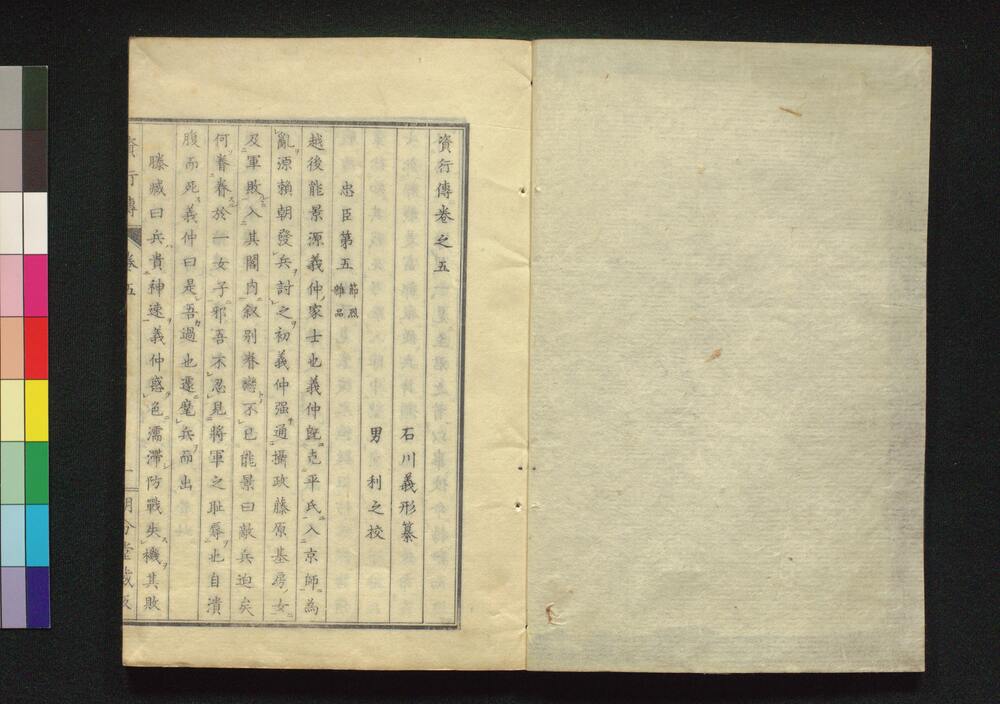 資行傳卷之五
石川義形纂
男 利之校
忠臣第五 節烈 雜品
越後能景源義仲家士也義仲既克平氏入京師為
亂源賴朝發兵討之初義仲强通攝政藤原基房女
及軍敗入其閣內叙別眷戀不已能景曰敵兵迫矣
何眷眷於一女子邪吾不忍見將軍之耻辱也自潰
腹而死義仲曰是吾過也遽麾兵而出
滕臧曰兵貴神速義仲惑色濡滯防戰失機其敗
資行傳 卷五 一 明分堂藏板